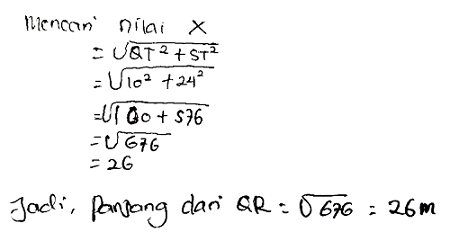 Mencari nilai X
= √QT² + ST²
= √10² + 24²
= √100 + 576
= √676
= 26
Jadi, Panjang dari QR = √676 = 26 m